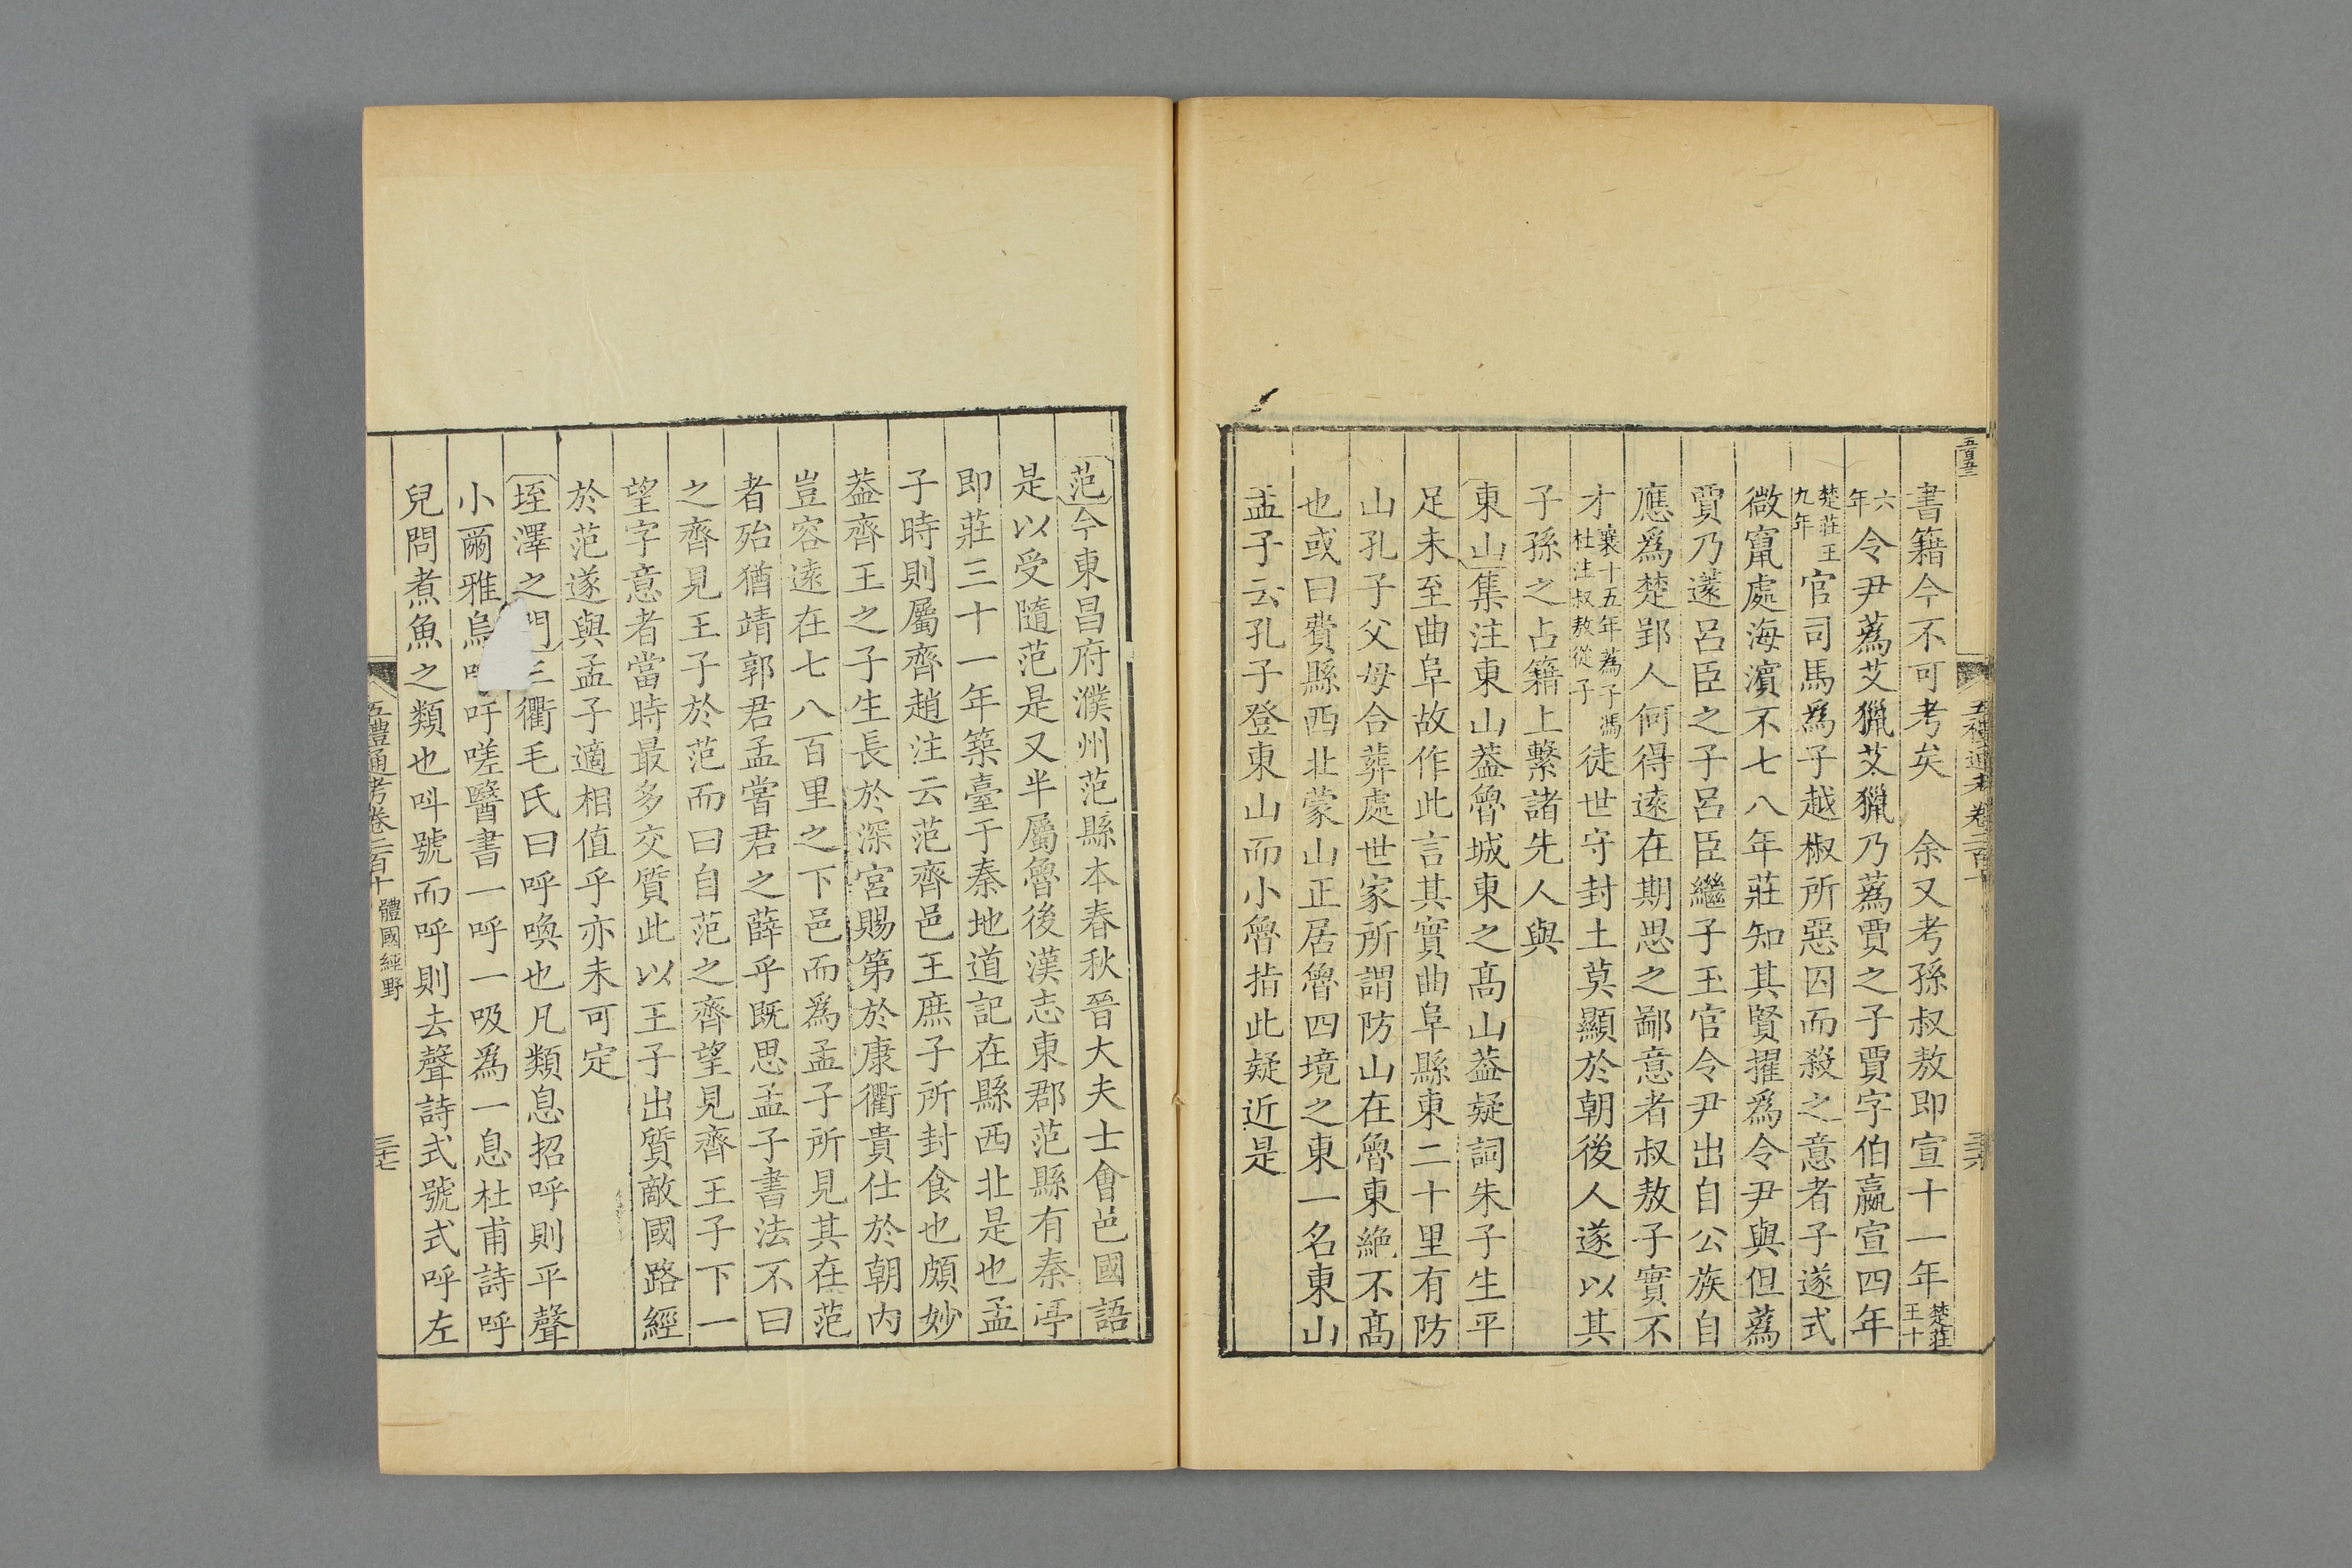 五百五三
五禮通考卷二百十
三六
書籍今不可考矣　余又考孫叔敖即宣十一年楚莊王十
六年令尹蒍艾獵艾獵乃蒍賈之子賈字伯嬴宣四年
楚莊王九年官司馬爲子越椒所惡囚而殺之意者子遂式
微竄處海濱不七八年莊知其賢擢爲令尹與但蒍
賈乃薳呂臣之子呂臣繼子玉官令尹出自公族自
應爲楚郢人何得遠在期思之鄙意者叔敖子實不
才襄十五年蒍子馮杜注叔敖從子徒世守封土莫顯於朝後人遂以其
子孫之占籍上繫諸先人與
東山集注東山葢魯城東之高山葢疑詞朱子生平
足未至曲阜故作此言其實曲阜縣東二十里有防
山孔子父母合葬處世家所謂防山在魯東絶不高
也或曰費縣西北蒙山正居魯四境之東一名東山
孟子云孔子登東山而小魯指此疑近是
范今東昌府濮州范縣本春秋晉大夫士會邑國語
是以受隨范是又半屬魯後漢志東郡范縣有秦亭
即莊三十一年築臺于秦地道記在縣西北是也孟
子時則屬齊趙注云范齊邑王庶子所封食也頗妙
葢齊王之子生長於深宮賜第於康衢貴仕於朝内
豈容遠在七八百里之下邑而爲孟子所見其在范
者殆猶靖郭君孟嘗君之薛乎既思孟子書法不曰
之齊見王子於范而曰自范之齊望見齊王子下一
望字意者當時最多交質此以王子出質敵國路經
於范遂與孟子適相值乎亦未可定
垤澤之門三衢毛氏曰呼喚也凡類息招呼則平聲
小爾雅烏呼吁嗟醫書一呼一吸爲一息杜甫詩呼
兒問煮魚之類也呌號而呼則去聲詩式號式呼左
五禮通考卷二百十
體國經野
三七